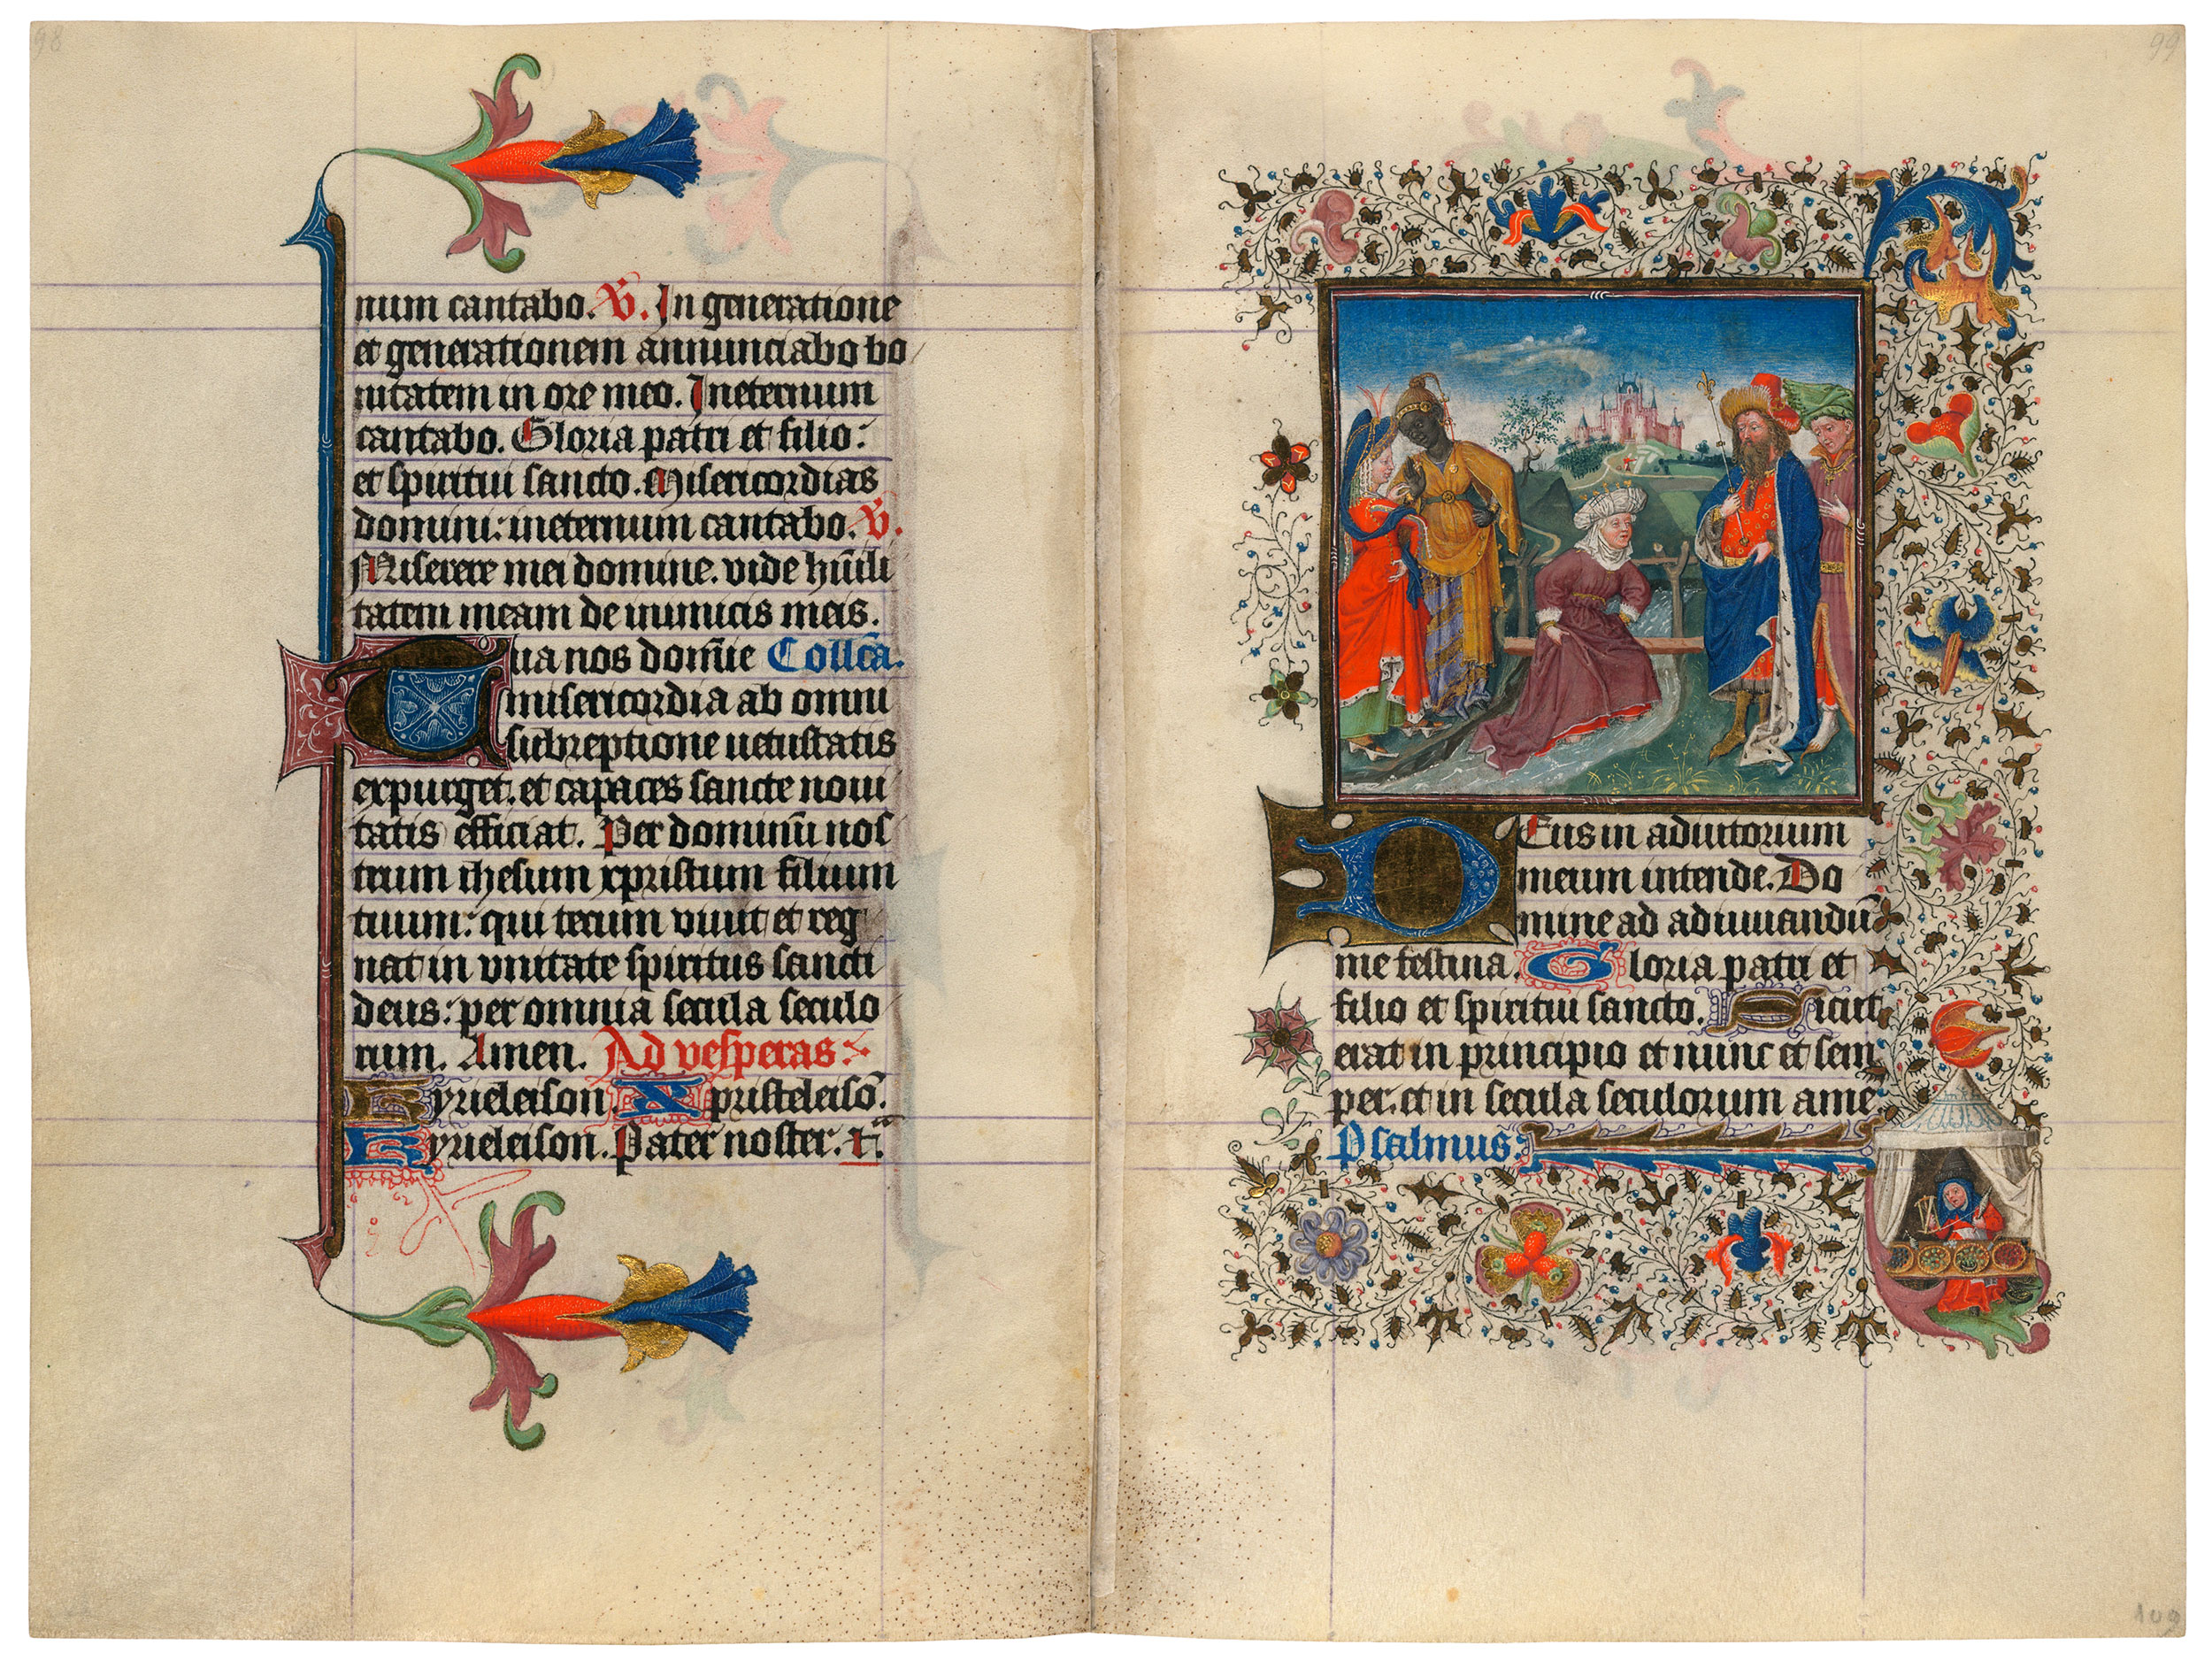 98
num cantabo. V. In generatione
et generationem annunciabo bo
nitatem in ore meo. Ineternum
cantabo. Gloria patri et filio:
et spiritui sancto. Misericordias
domini: ineternum cantabo. V.
Miserere mei domine. vide hūili
tatem meam de inimicis meis.
Tua nos domīe Collc̄a.
misericordia ab omni
subreptione uetustatis
expurget. et capaces sancte noui
tatis efficiat. Per dominū nos
trum ihesum xpristum filium
tuum: qui tecum viuit et reg
nat in vnitate spiritus sancti
deus: per omnia secula seculo
rum. Amen. Ad vesperas:
Kyrieleison. Xpristeleisō.
Kyrieleison. Pater noster.
99
DEus in adiutorium
meum intende. Do
mine ad adiuuandū
me festina. Gloria patri et
filio et spiritui sancto. Sicut
erat in principio et nunc et sem
per. et in secula seculorum ame
Psalmus:
109